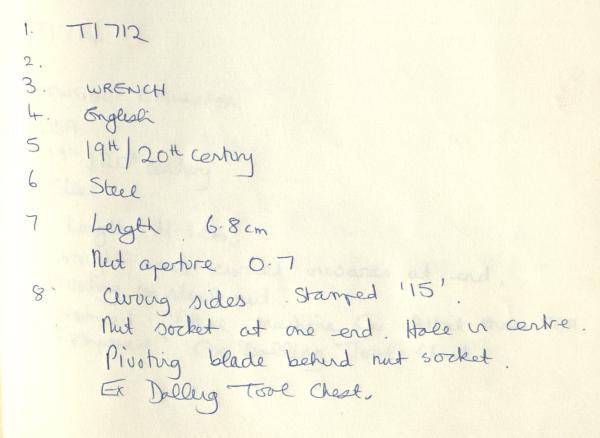 1. T1712
2.
3. WRENCH
4. English
5 19th/20th century
6 Steel
7 Length 6.8cm
Nut aperture 0.7
8. Curving sides. Stamped '15'.
Nut socket at one end. Hole in centre.
Pivoting blade behind nut socket.
Ex Dalling Tool Chest.